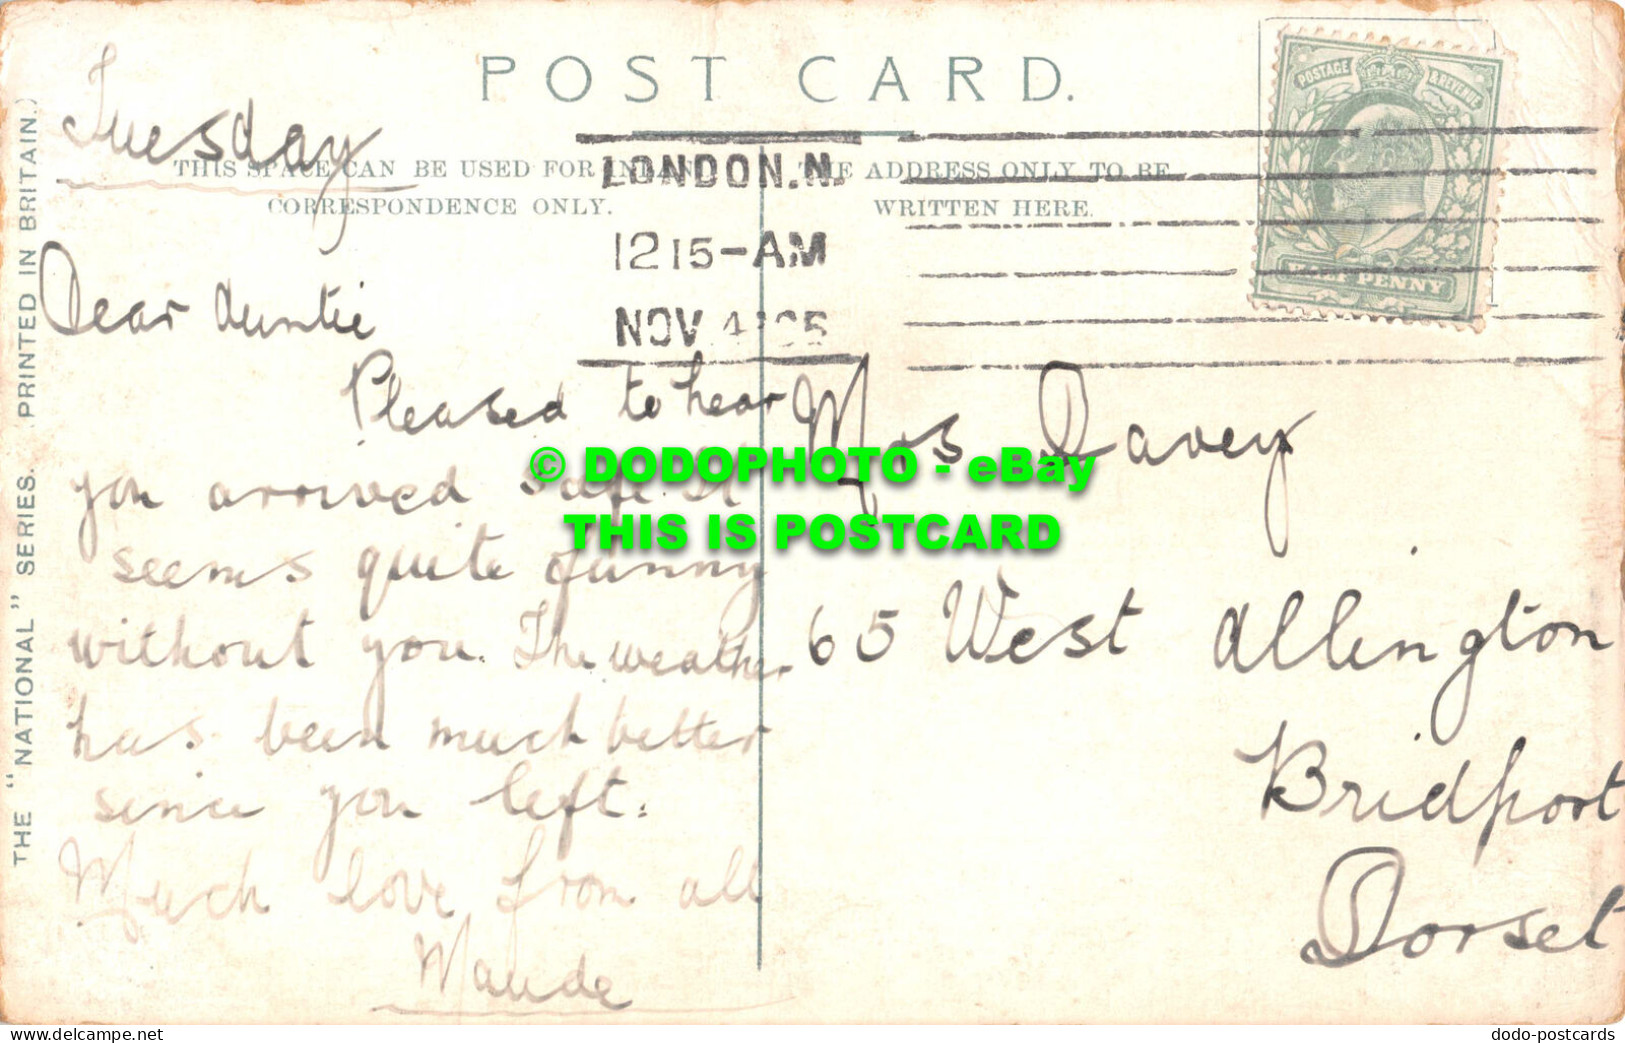 POST CARD.
THIS SPACE CAN BE USED FOR
CORRESPONDENCE ONLY.
THE ADDRESS ONLY TO BE
WRITTEN HERE.
LONDON.N.
12 15-AM
NOV 4 '05
POSTAGE & REVENUE
HALFPENNY
Tuesday
Dear Auntie
Pleased to hear
you arrived safe. It
seems quite funny
without you. The weather
has been much better
since you left.
Much love from all
Maude
Mrs Davey
65 West Allington
Bridport
Dorset
THE "NATIONAL" SERIES. PRINTED IN BRITAIN.)
© DODOPHOTO - eBay
THIS IS POSTCARD
delcampe.net
dodo-postcards